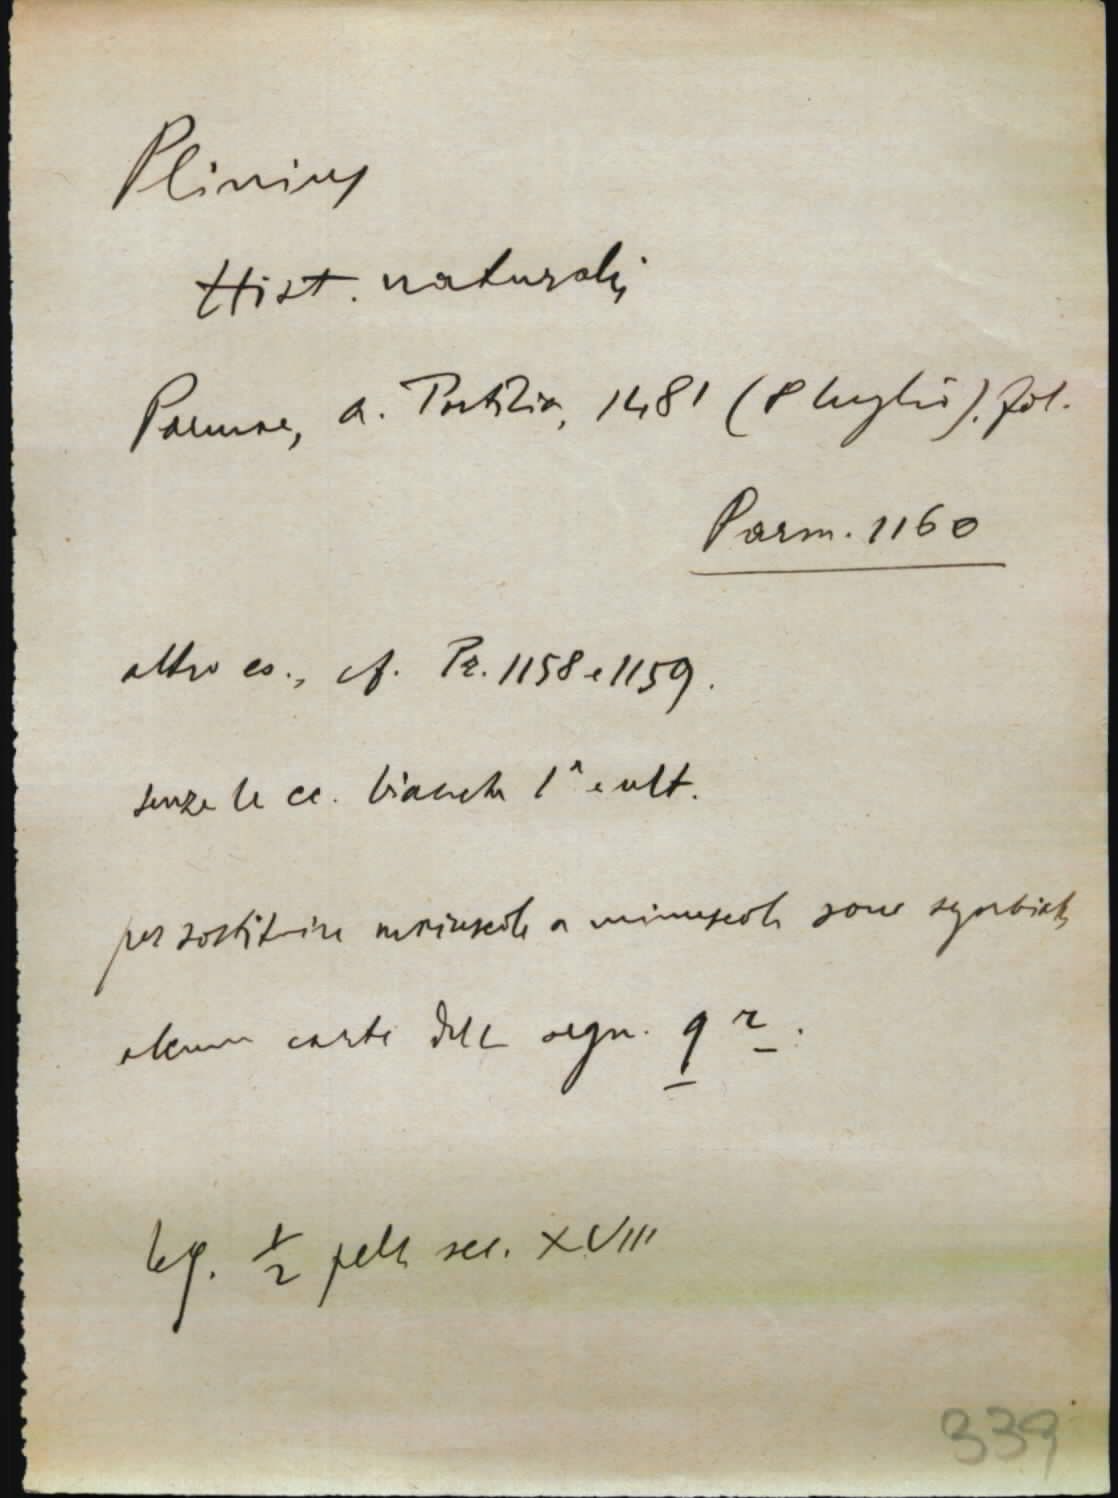 Plinius
Hist. naturalis
Parmae, A. Portilia, 1481 (8 luglio). fol.
Parm. 1160
altro es., cf. Pr. 1158 e 1159.
senza le cc. bianche 1ª e ult.
per sostituire maiuscole a minuscole sono
alcune carte delle segn. q r.
leg. 1/2 pelle sec. XVIII
339